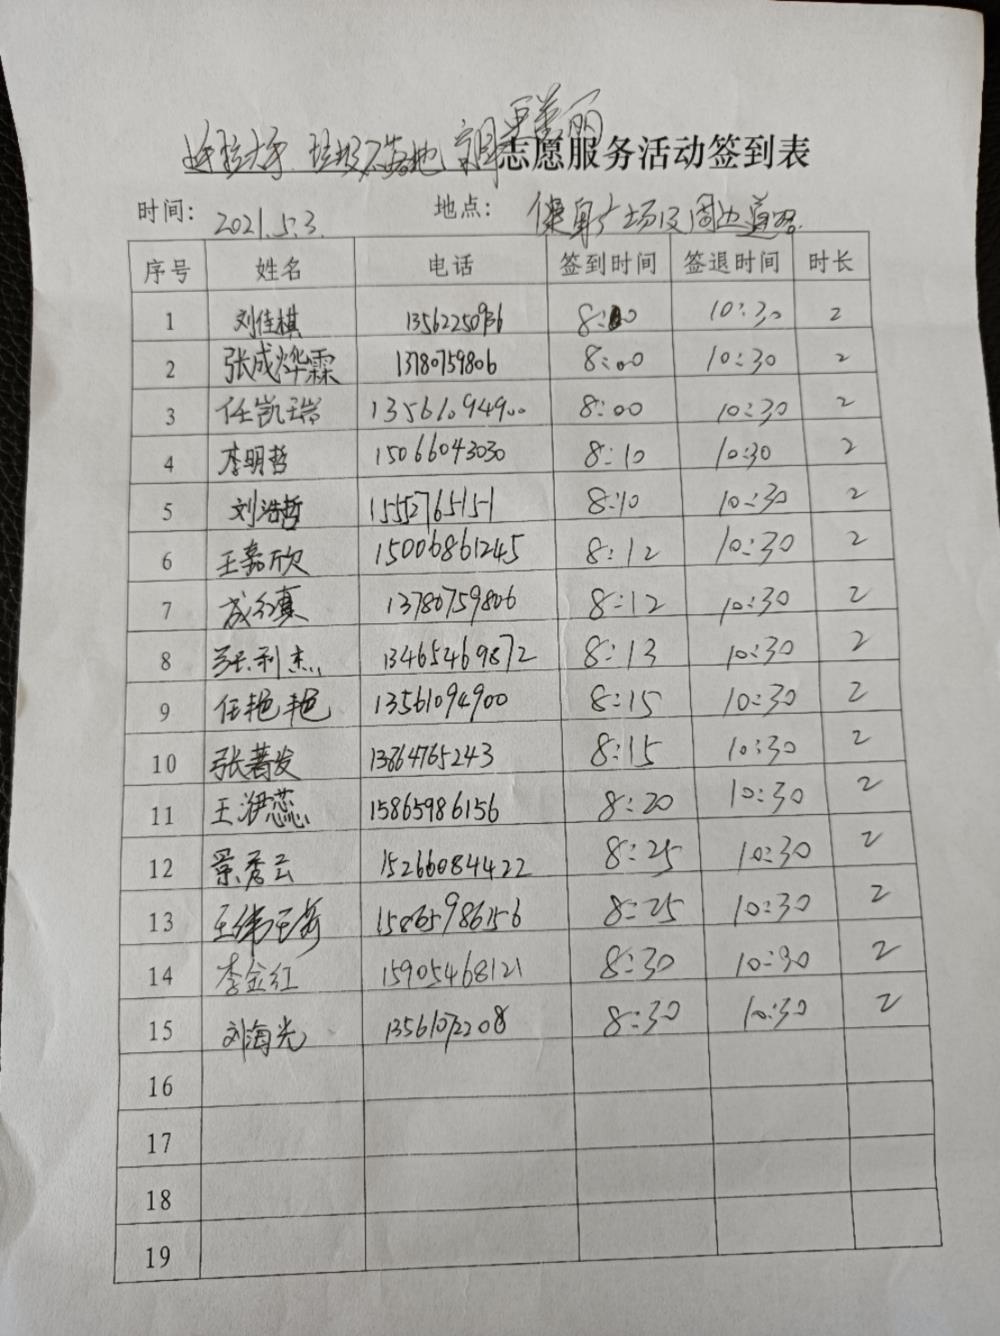 垃圾不落地 莒县更美丽 志愿服务活动签到表
时间: 2021.5.3. 地点: 健身广场及周边道路.
序号 姓名 电话 签到时间 签退时间 时长
1 刘佳棋 13562250936 8:00 10:30 2
2 张成烨霖 13780759806 8:00 10:30 2
3 任凯瑞 13561094900 8:00 10:30 2
4 李明哲 15066043030 8:10 10:30 2
5 刘浩哲 1552765151 8:10 10:30 2
6 王嘉欣 15006861245 8:12 10:30 2
7 成红真 13780759806 8:12 10:30 2
8 张利杰 13465469872 8:13 10:30 2
9 任艳艳 13561094900 8:15 10:30 2
10 张著发 13864765243 8:15 10:30 2
11 王伊蕊 15865986156 8:20 10:30 2
12 景秀云 15266084422 8:25 10:30 2
13 王 15865986156 8:25 10:30 2
14 李金红 15905468121 8:30 10:30 2
15 刘海光 13561072208 8:30 10:30 2
16
17
18
19